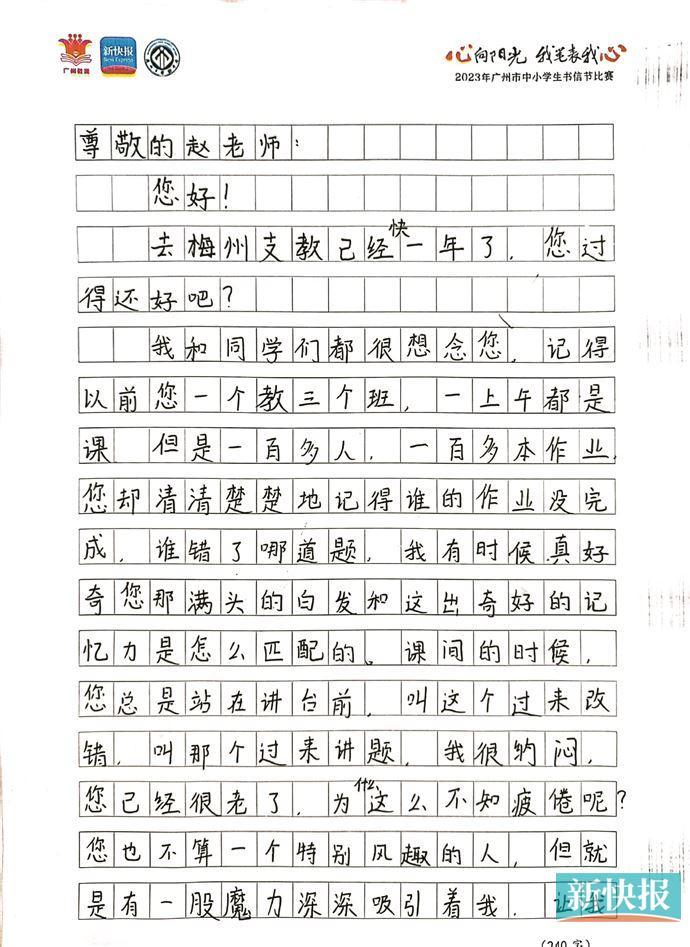 广州教育
新快报
New Express
心向阳光 我笔表我心
2023年广州市中小学生书信节比赛
尊敬的赵老师:
您好!
去梅州支教已经快一年了,您过
得还好吧?
我和同学们都很想念您,记得
以前您一个教三个班,一上午都是
课 但是一百多人,一百多本作业,
您却清清楚楚地记得谁的作业没完
成,谁错了哪道题,我有时候真好
奇您那满头的白发和这出奇好的记
忆力是怎么匹配的。课间的时候,
您总是站在讲台前,叫这个过来改
错,叫那个过来讲题,我很纳闷,
您已经很老了,为什么这么不知疲倦呢?
您也不算一个特别风趣的人,但就
是有一股魔力深深吸引着我,让我
新快报
(240字)